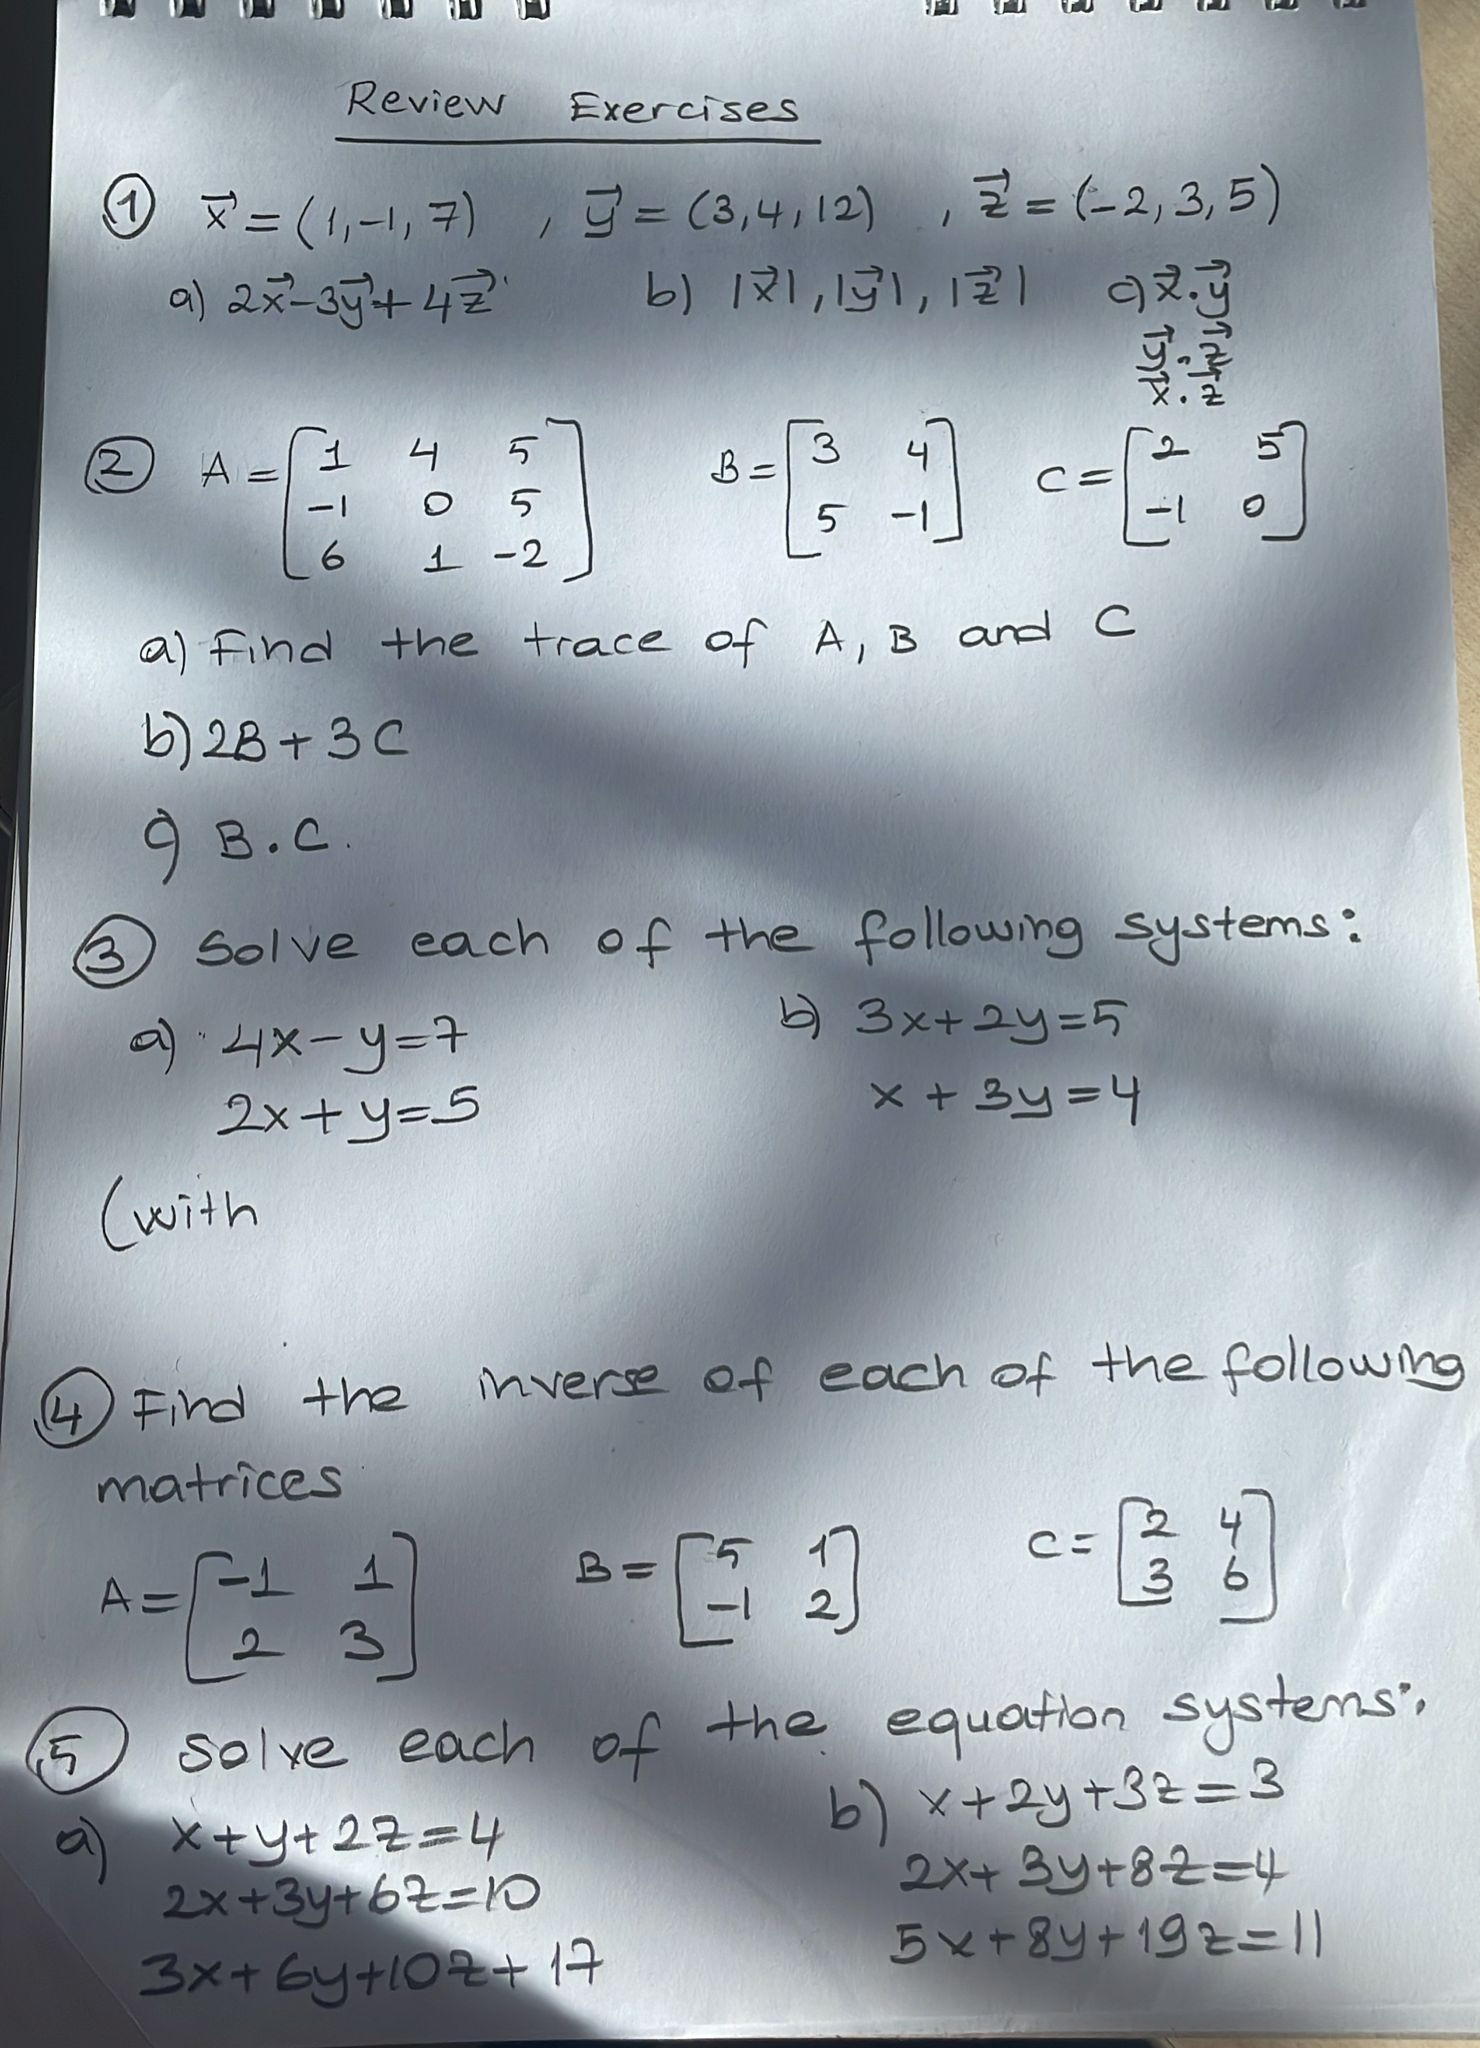 Review Exercises
① x⃗ = (1, -1, 7) , y⃗ = (3, 4, 12) , z⃗ = (-2, 3, 5)
a) 2x⃗ - 3y⃗ + 4z⃗ b) |x⃗|, |y⃗|, |z⃗| c) x⃗.y⃗
y⃗.z⃗
x⃗.z⃗
② A = [1 4 5; -1 0 5; 6 1 -2] B = [3 4; 5 -1] C = [2 5; -1 0]
a) Find the trace of A, B and C
b) 2B + 3C
c) B.C.
③ Solve each of the following systems:
a) 4x - y = 7 b) 3x + 2y = 5
2x + y = 5 x + 3y = 4
(with
④ Find the inverse of each of the following
matrices
A = [-1 1; 2 3] B = [5 1; -1 2] C = [2 4; 3 6]
⑤ Solve each of the equation systems:
a) x + y + 2z = 4 b) x + 2y + 3z = 3
2x + 3y + 6z = 10 2x + 3y + 8z = 4
3x + 6y + 10z + 17 5x + 8y + 19z = 11